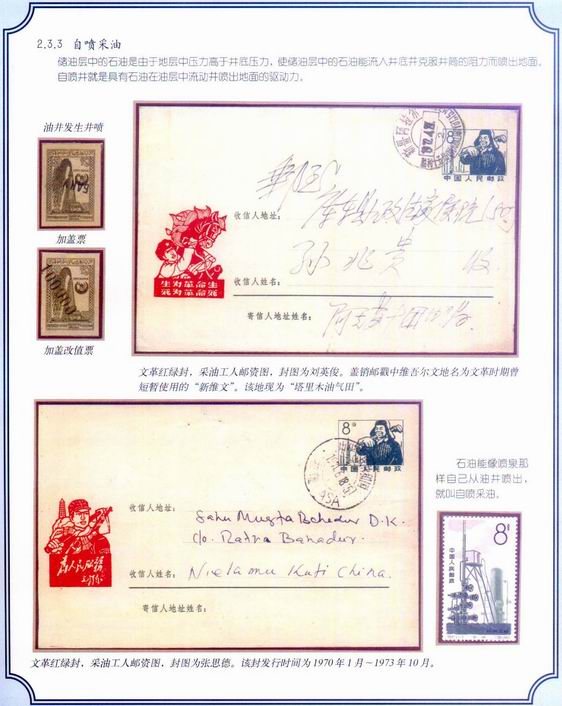 2.3.3 自喷采油
储油层中的石油是由于地层中压力高于井底压力，使储油层中的石油能流入井底并克服井筒的阻力而喷出地面。
自喷井就是具有石油在油层中流动并喷出地面的驱动力。
油井发生井喷
加盖票
加盖改值票
8分
中国人民邮政
收信人地址：
孙兆贵 收
收信人姓名：
寄信人地址姓名：
生为革命生
死为革命死
文革红绿封，采油工人邮资图，封图为刘英俊。盖销邮戳中维吾尔文地名为文革时期曾
短暂使用的“新维文”。该地现为“塔里木油气田”。
8分
中国人民邮政
收信人地址：
Sahu
D.K.
c/o. Ratna Bahadur.
收信人姓名：
Kuti China.
寄信人地址姓名：
为人民服务
石油能像喷泉那
样自己从油井喷出，
就叫自喷采油。
8分
中国人民邮政
文革红绿封，采油工人邮资图，封图为张思德。该封发行时间为1970年1月～1973年10月。